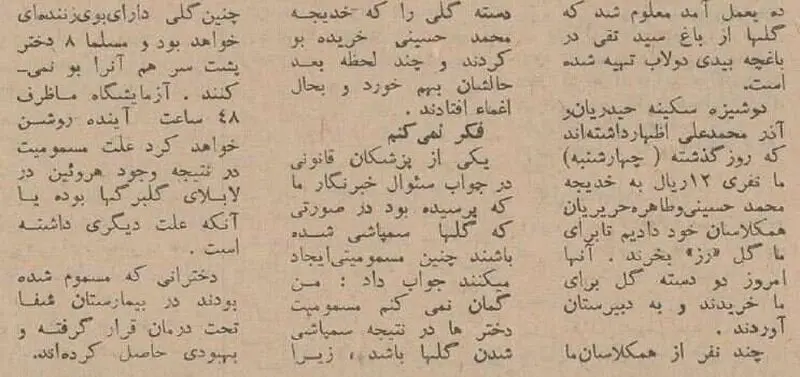 ده بعمل آمد معلوم شد که
گلها از باغ سید تقی در
باغچه بیدی دولاب تهیه شده
است.
دوشیزه سکینه حیدریان و
آذر محمدعلی اظهارداشته‌اند
که روز گذشته ( چهارشنبه)
ما نفری ۱۲ریال به خدیجه
محمد حسینی وطاهره‌حریریان
همکلاسان خود دادیم تابرای
ما گل «رز» بخرند . آنها
امروز دو دسته گل برای
ما خریدند و به دبیرستان
آوردند .
چند نفر از همکلاسان‌ما
دسته گلی را که خدیجه
محمد حسینی خریده بو
کردند و چند لحظه بعد
حالشان بهم خورد و بحال
اغماء افتادند .
فکر نمی کنم
یکی از پزشکان قانونی
در جواب سئوال خبرنگار ما
که پرسیده بود در صورتی
که گلها سمپاشی شده
باشند چنین مسمومیتی‌ایجاد
میکنند جواب داد : من
گمان نمی کنم مسمومیت
دختر ها در نتیجه سمپاشی
شدن گلها باشد ، زیرا
چنین‌گلی دارای‌بوی‌زننده‌ای
خواهد بود و مسلما ۸ دختر
پشت سر هم آنرا بو نمی-
کنند . آزمایشگاه ماظرف
۴۸ ساعت آینده روشن
خواهد کرد علت مسمومیت
در نتیجه وجود هروئین در
لابلای گلبرگها بوده یا
آنکه علت دیگری داشته
است .
دخترانی که مسموم شده
بودند در بیمارستان شفا
تحت درمان قرار گرفته و
بهبودی حاصل کرده‌اند.